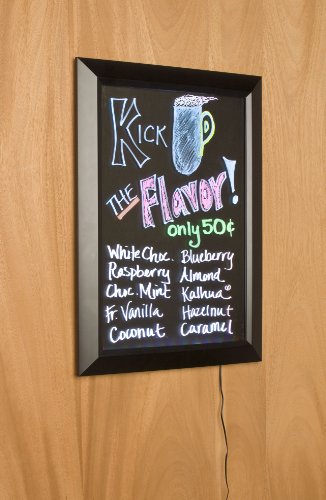 Kick
THE Flavor!
only 50¢
White Choc. Blueberry
Raspberry Almond
Choc. Mint Kalhua®
Fr. Vanilla Hazelnut
Coconut Caramel